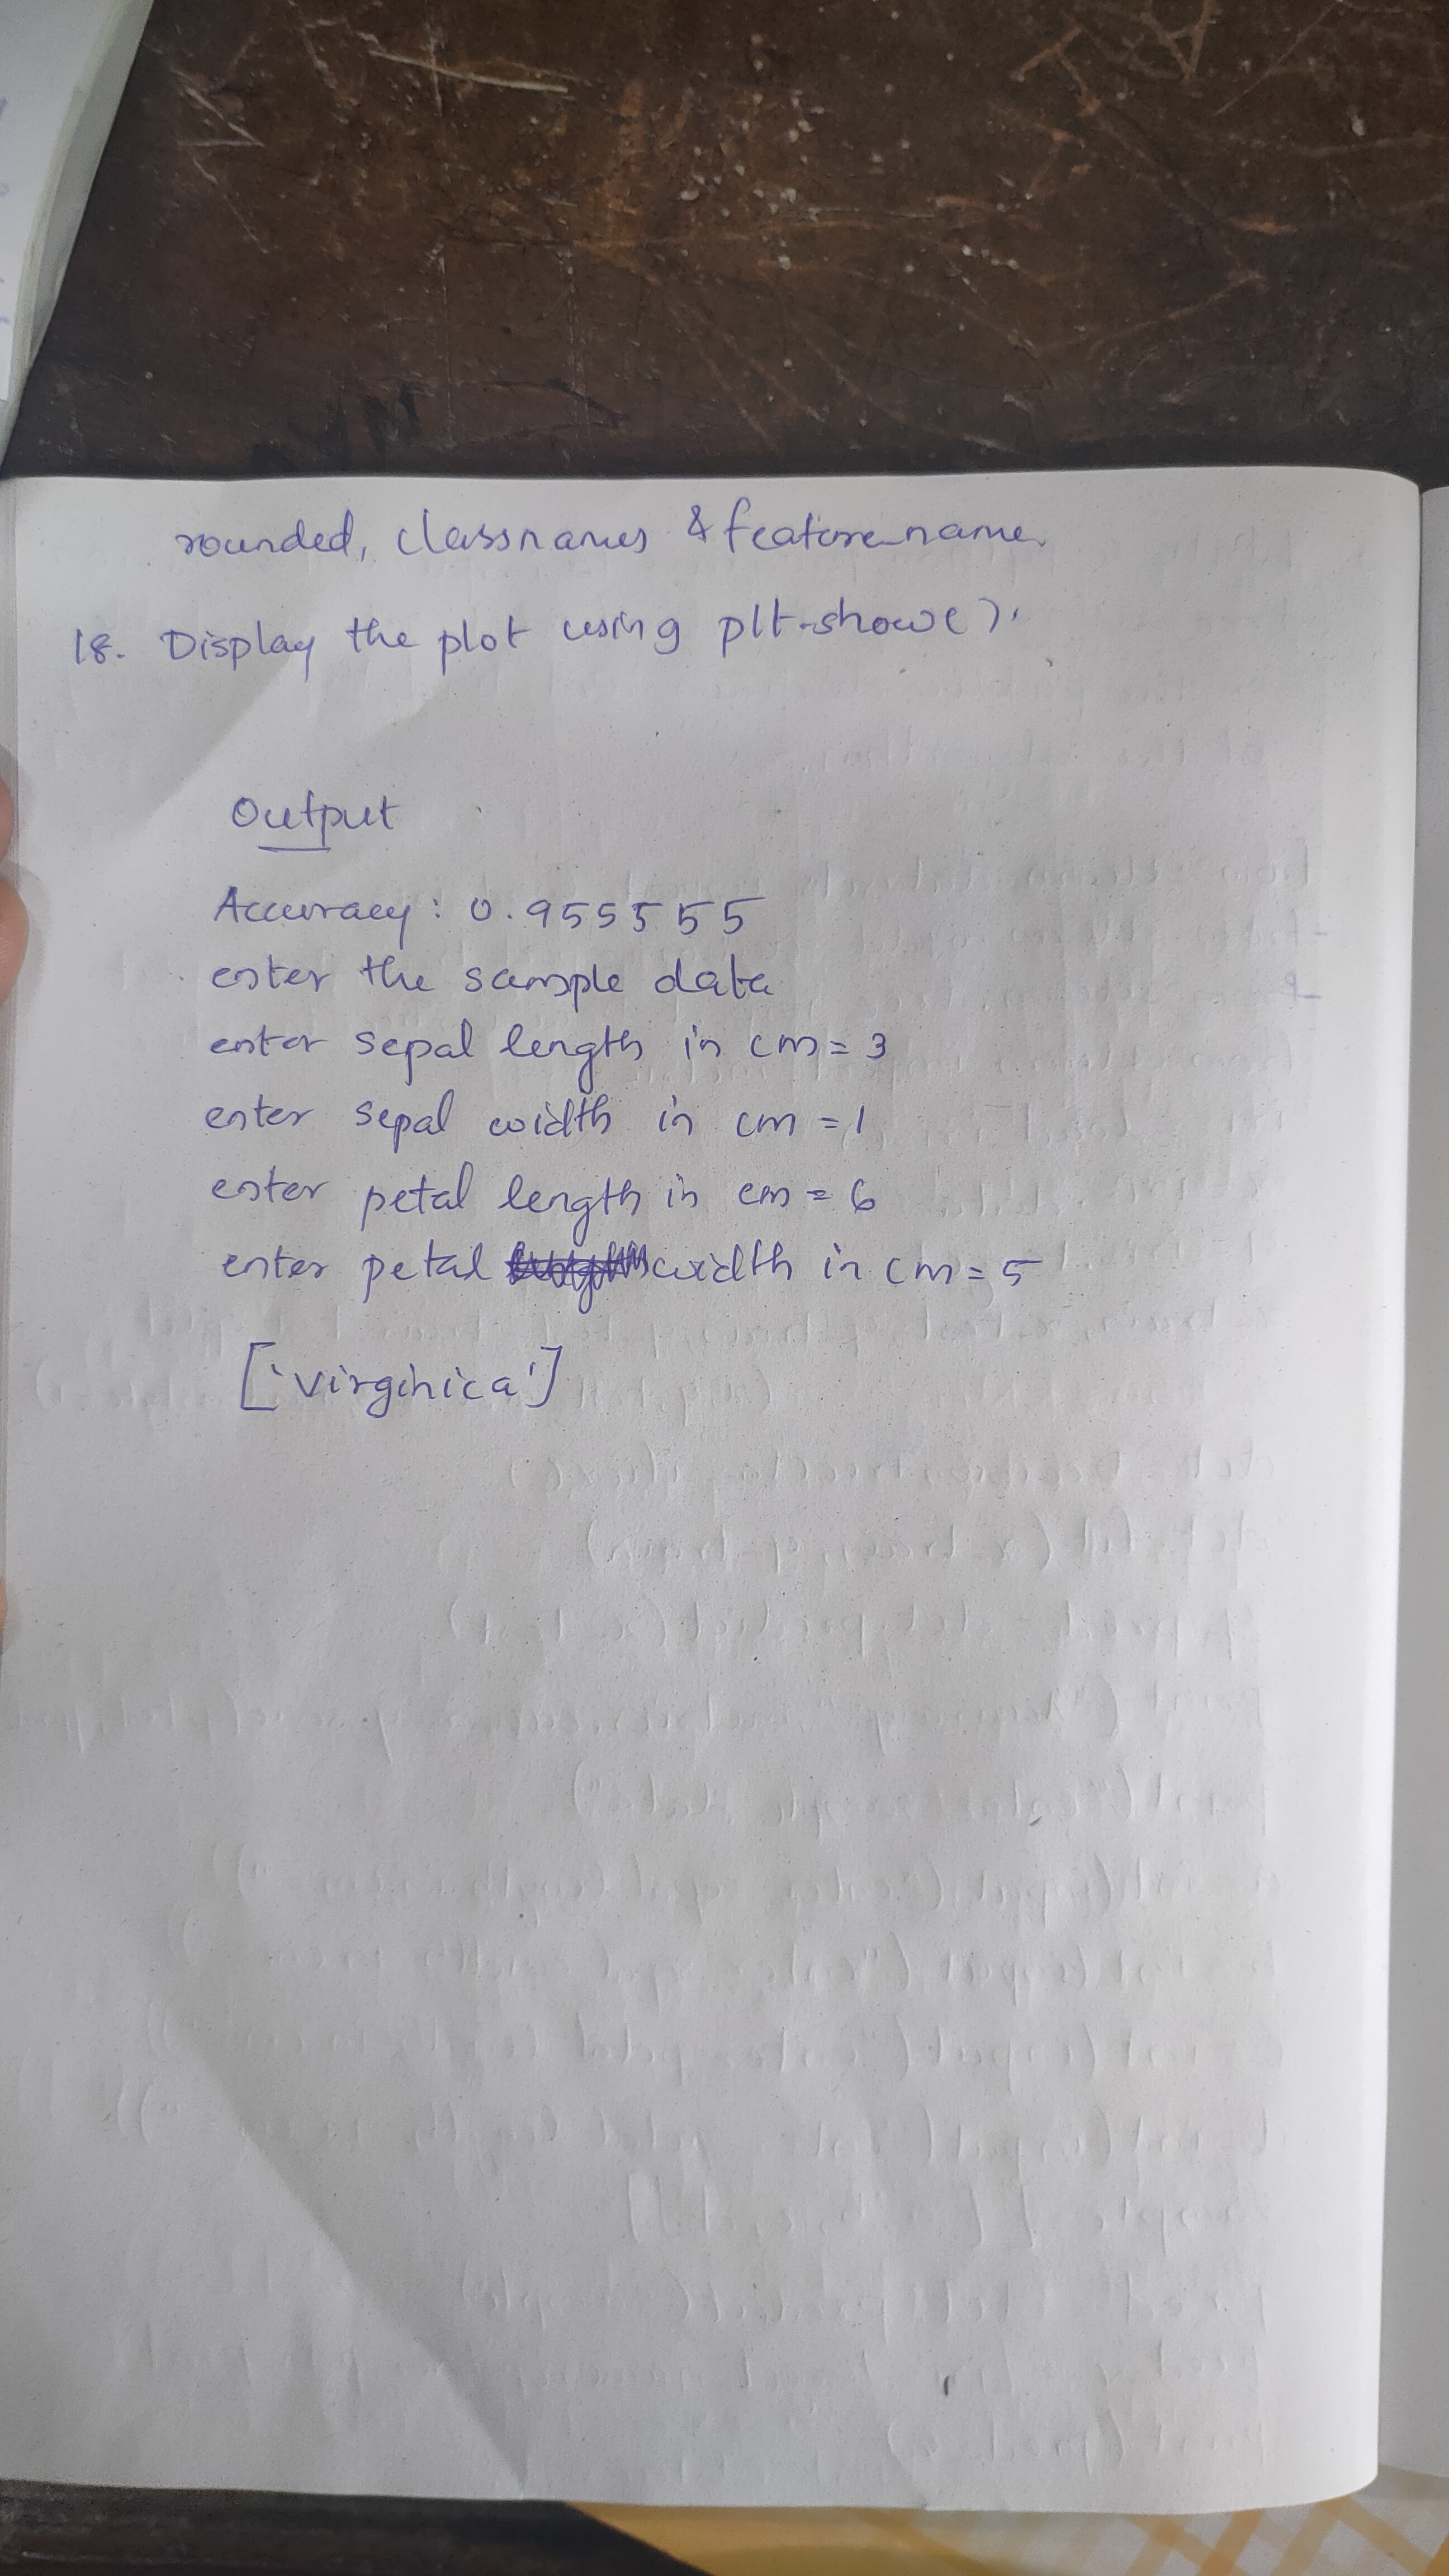 rounded, classnames & feature_name.
18. Display the plot using plt.show().
Output
Accuracy: 0.955555
enter the sample data
enter sepal length in cm = 3
enter sepal width in cm = 1
enter petal length in cm = 6
enter petal width in cm = 5
['virginica']